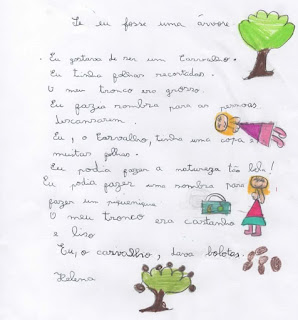 Se eu fosse uma árvore
Eu gostava de ser um Carvalho.
Eu tinha folhas recortadas.
O meu tronco era grosso.
Eu fazia sombra para as pessoas
descansarem.
Eu, o Carvalho, tinha uma copa e
muitas folhas.
Eu podia fazer a natureza tão bela!
Eu podia fazer uma sombra para
fazer um piquenique
O meu tronco era castanho
e liso
Eu, o carvalho, dava bolotas.
Helena